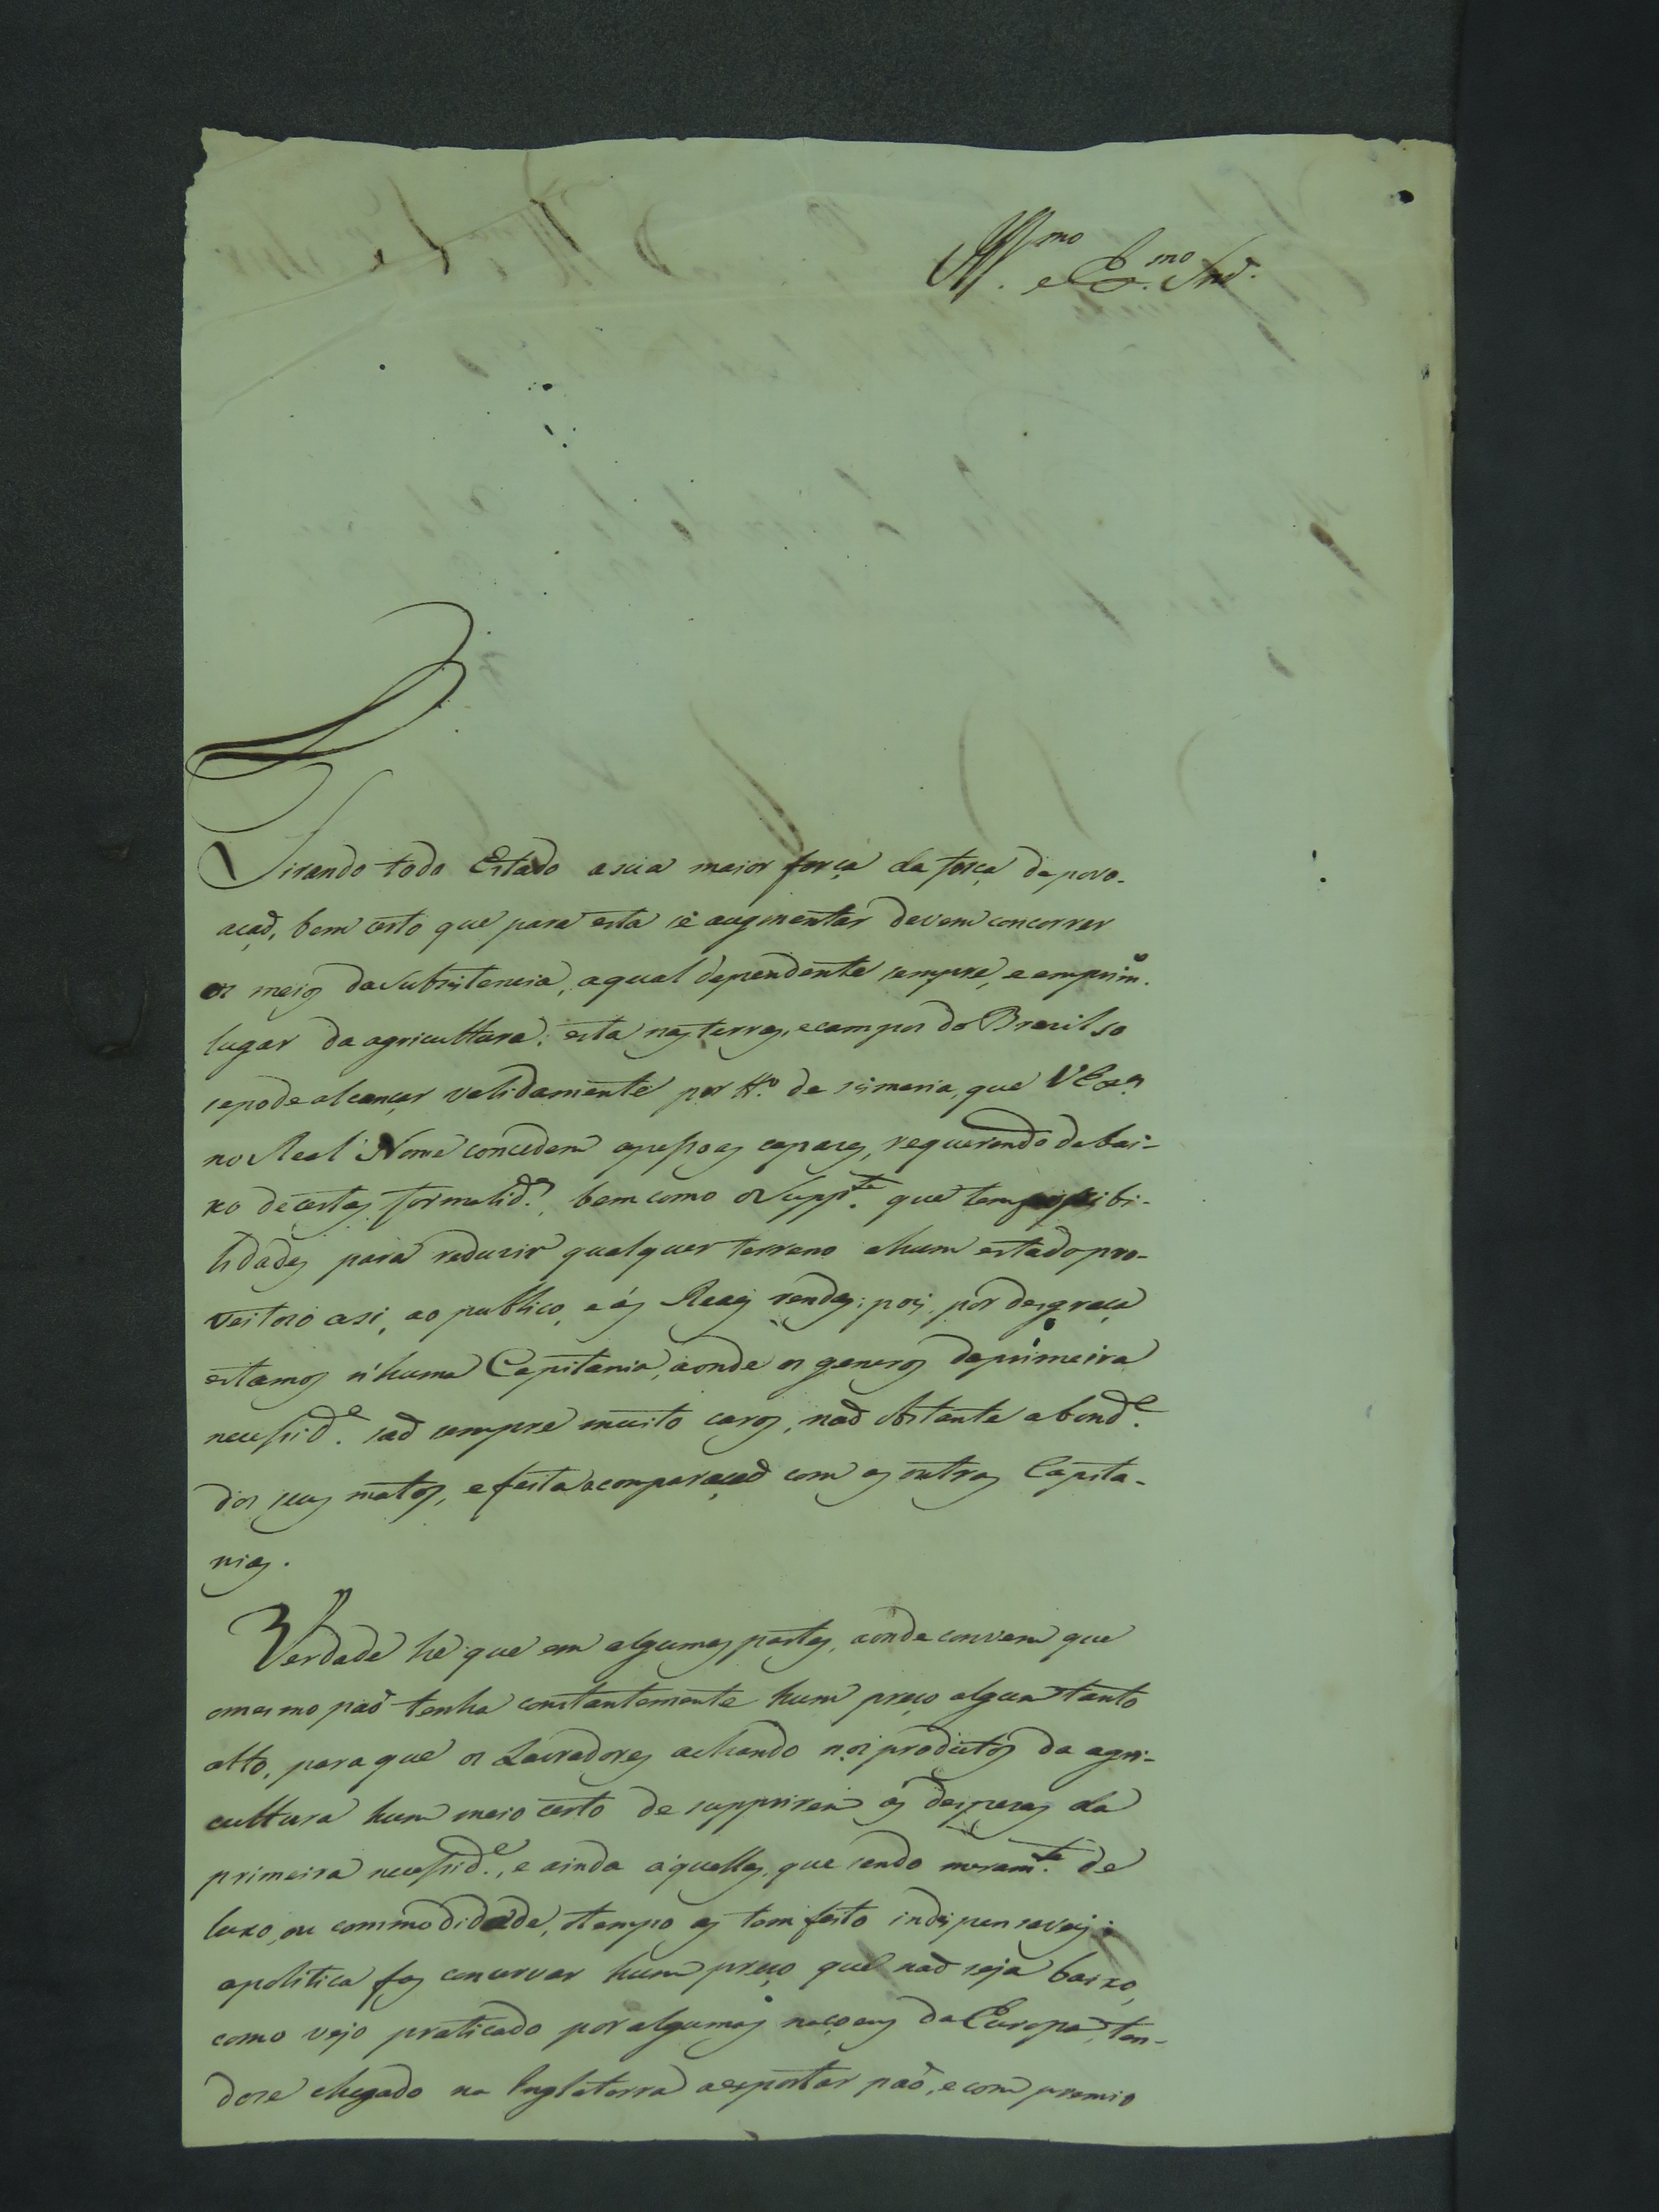 Ill.mo e Ex.mo Snr.
Tirando todo Estado a sua maior força da força da povo-
açaõ, bem certo que para esta se augmentar devem concorrer
os meios da Subsistencia, a qual dependente sempre, e em prim.o
lugar da agricultura: esta nas terras, e campos do Brazil so
se pode alcançar validamente por tt.o de sismaria, que VEx.as
no Real Nome concedem a pessoas capazes, requerendo debai-
xo de certas formalid.es, bem como o Supp.te que tem possibi-
lidades para reduzir qualquer terreno a hum estado pro-
veitoso asi, ao publico, e ás Reaes rendas; pois, por desgraça
estamos n'huma Capitania, aonde os generos da primeira
necessid.e saõ sempre muito caros, naõ obstante a bond.e
dos seus matos, e feita a comparaçaõ com as outras Capita-
nias.
Verdade he que em algumas partes, aonde convem que
o mesmo paõ tenha constantemente hum preço algum tanto
alto, para que os Lavradores achando nos productos da agri-
cultura hum meio certo de supprirem ás despezas da
primeira necessid.e, e ainda áquellas, que sendo meram.te de
luxo, ou commodidade, o tempo as tem feito indispensaveis:
a politica faz conservar hum preço que naõ seja baixo,
como vejo praticado por algumas naçoens da Europa, ten-
dose chegado na Inglaterra a exportar paõ, e com premio